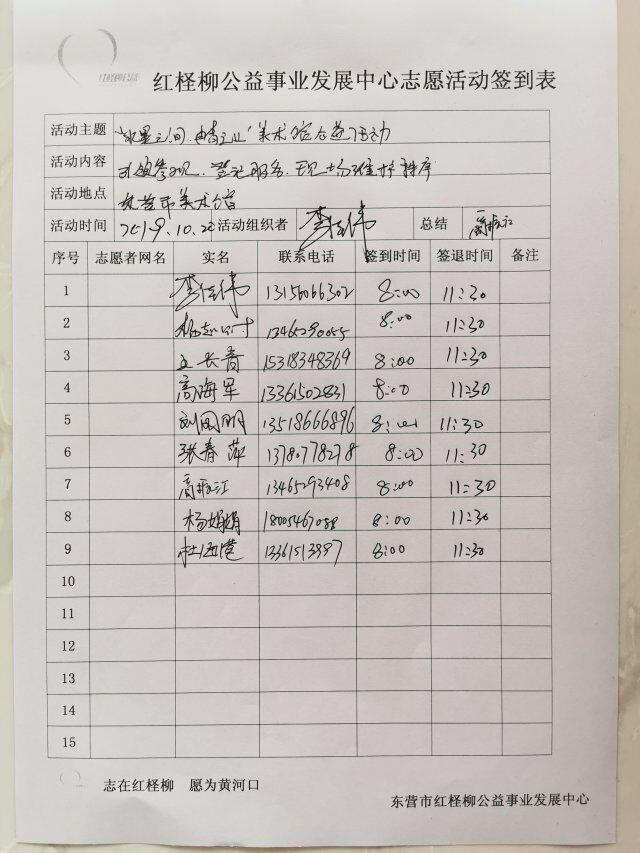 红柽柳公益
红柽柳公益事业发展中心志愿活动签到表
活动主题 美术馆公益活动
活动内容 参观、登记服务、现场维护秩序
活动地点 东营市美术馆
活动时间 2019.10.2 活动组织者 总结 高振江
序号 志愿者网名 实名 联系电话 签到时间 签退时间 备注
1 13156066302 8:00 11:30
2 13465290055 8:00 11:30
3 王长青 15318348369 8:00 11:30
4 高海军 13361502831 8:00 11:30
5 刘国明 13518666896 8:00 11:30
6 张春萍 13780778278 8:00 11:30
7 高振江 13465293408 8:00 11:30
8 杨娟娟 18005467088 8:00 11:30
9 13361513997 8:00 11:30
10
11
12
13
14
15
志在红柽柳 愿为黄河口
东营市红柽柳公益事业发展中心